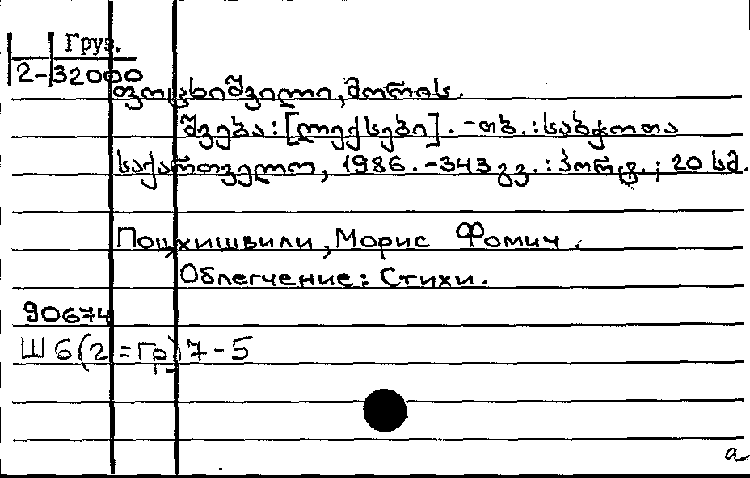 Груз.
2-32000
ფოცხიშვილი, მორის.
შვება: [ლექსები]. - თბ.: საბჭოთა
საქართველო, 1986. - 343 გვ.: პორტ.; 20 სმ.
Поцхишвили, Морис Фомич.
Облегчение: Стихи.
90674
Ш6(2=Гр)7-5
а